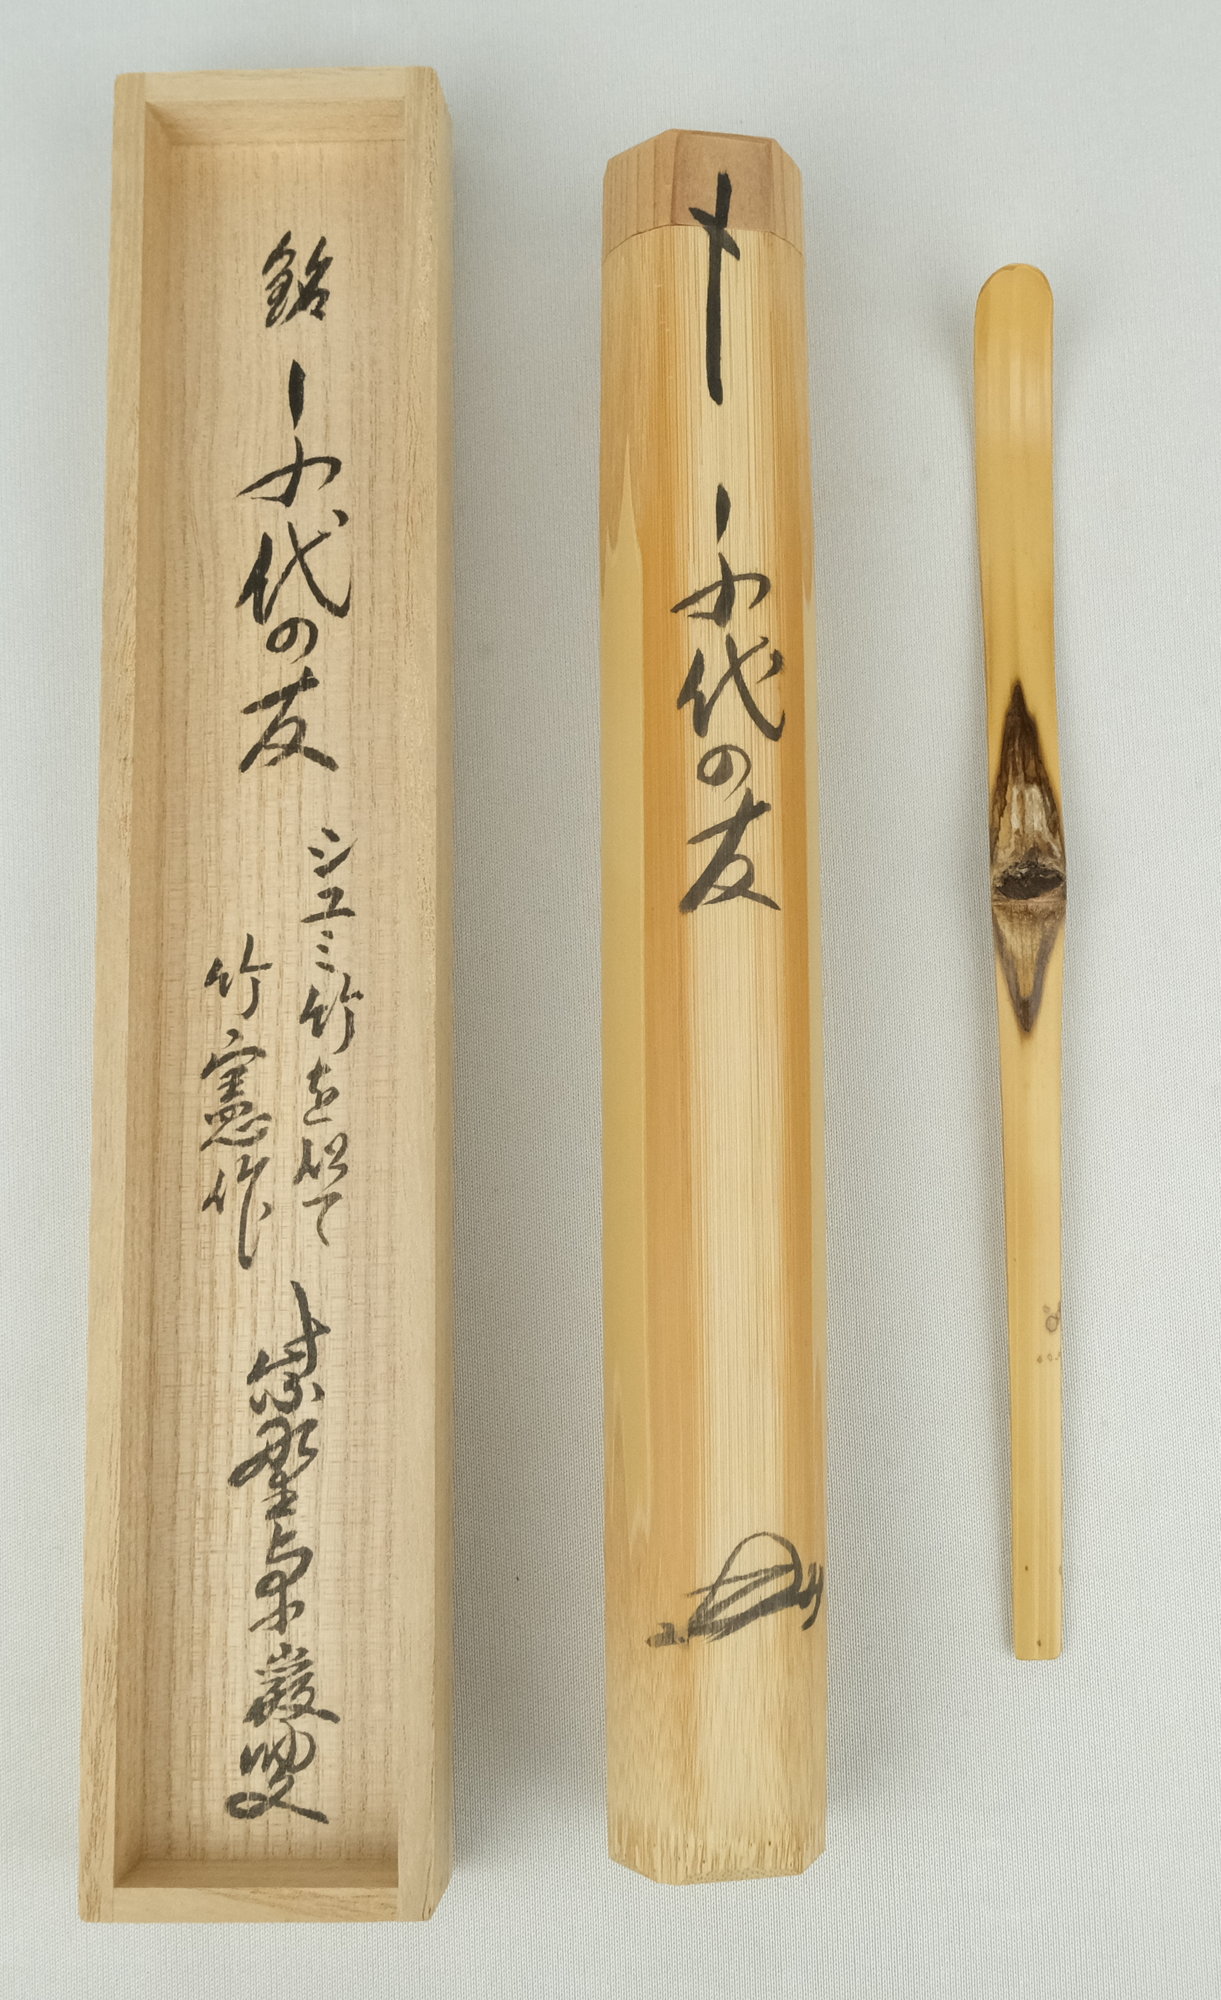 銘
千代の友
シユミ竹を以て
竹憲作
紫野寡厳叟
〆
千代の友